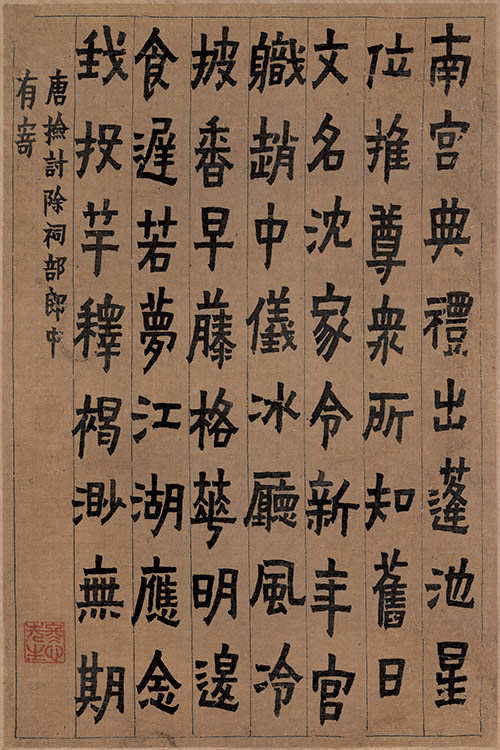 南宮典禮出蓬池星
位推尊衆所知舊日
文名沈家令新年官
軄趙中儀冰廳風冷
披香早藤格華明退
食遲若夢江湖應念
我投竿釋褐渺無期
唐撿討除祠部郎中
有寄
冬心先生